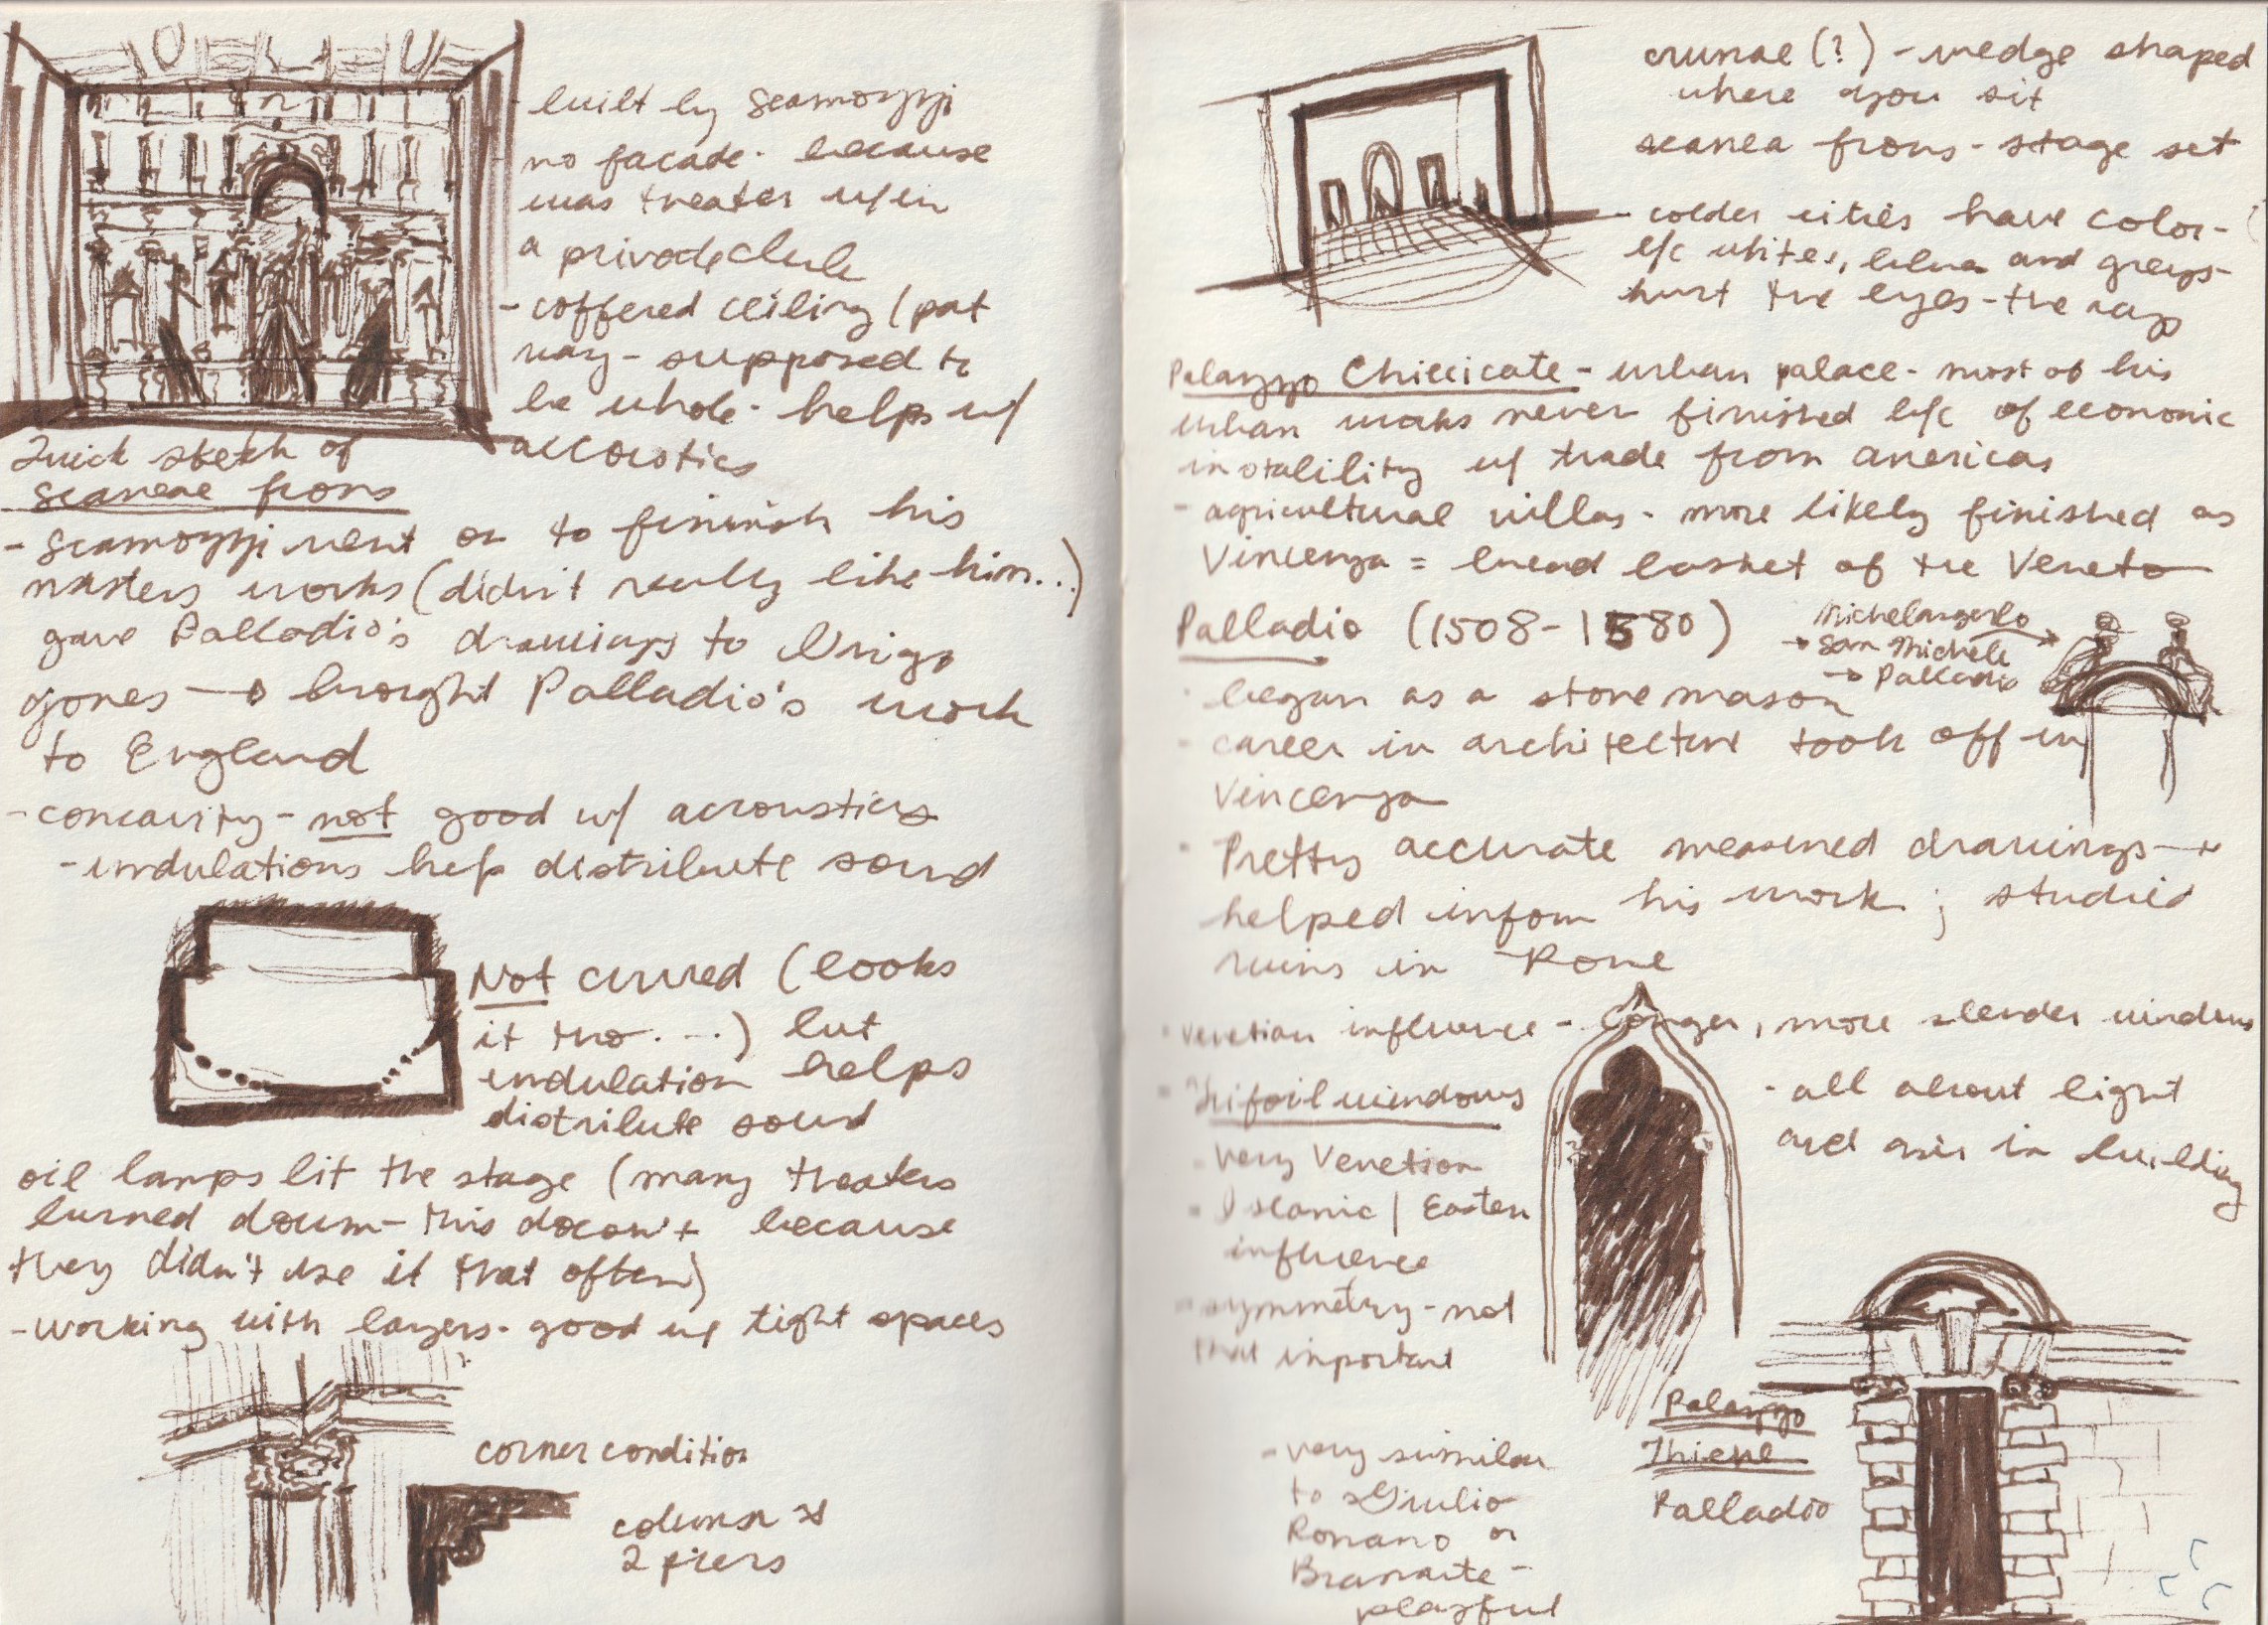 - built by Scamozzi
no facade - because
was theater w/in
a private club
- coffered ceiling (part
way - supposed to
be whole - helps w/
accoustics
Quick sketch of
scaneae frons
- Scamozzi went on to finish his
masters works (didn't really like him...)
gave Palladio's drawings to Inigo
Jones → brought Palladio's work
to England
- concavity - not good w/ accoustics
- undulations help distribute sound
Not curved (looks
it tho....) but
undulation helps
distribute sound
oil lamps lit the stage (many theaters
burned down - this doesn't because
they didn't use it that often)
- working with layers - good w/ tight spaces
corner condition
column &
2 piers
crunae (?) - wedge shaped
where you sit
scanea frons - stage set
- colder cities have color -
b/c whites, blues and greys -
hurt the eyes - the rays
Palazzo Chiericate - urban palace - most of his
urban works never finished b/c of economic
instability w/ trade from americas
- agricultural villas - more likely finished as
Vincenza = bread basket of the Veneto
Palladio (1508-1580)
Michelangelo
→ San Michele
→ Palladio
- began as a stone mason
- career in architecture took off in
Vincenza
- Pretty accurate measured drawings →
helped inform his work; studied
ruins in Rome
- Venetian influence - Longer, more slender windows
- Trifoil windows
- very Venetian
- Islamic / Eastern
influence
- symmetry - not
that important
- all about light
and axis in building
Palazzo
Thiene
Palladio
- very similar
to Giulio
Romano or
Bramante -
playful